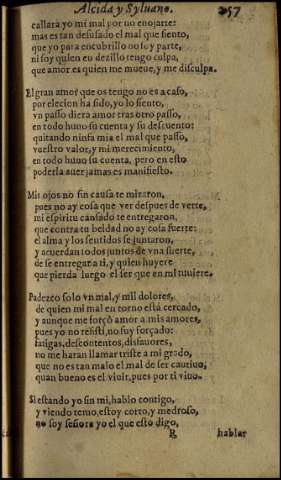 Alcida y Syluano. 257
callara yo mi mal por no enojarte:
mas es tan desusado el mal que siento,
que yo para encubrillo no soy parte,
ni soy quien en dezillo tengo culpa,
que amor es quien me mueue, y me disculpa.
El gran amor que os tengo no es acaso,
por elecion ha sido, yo lo siento,
vn passo diera amor tras otro passo,
en todo huuo su cuenta y su descuento:
quitando ninfa mia el mal que passo,
vuestro valor, y mi merecimiento,
en todo huuo su cuenta, pero en esto
poderla auer jamas es manifiesto.
Mis ojos no sin causa te miraron,
pues no ay cosa que ver despues de verte,
mi espiritu cansado te entregaron,
que contra tu beldad no ay cosa fuerte:
el alma y los sentidos se juntaron,
y acuerdan todos juntos de vna suerte,
de se entregar a ti, y quien huyere
que pierda luego el ser que en mi tuuiere.
Padezco solo vn mal, y mil dolores,
de quien mi mal en torno está cercado,
y aunque me forçò amor a mis amores,
pues yo no resisti, no fuy forçado:
fatigas, descontentos, disfauores,
no me haran llamar triste a mi grado,
que no es tan malo el mal de ser cautiuo,
quan bueno es el viuir, pues por ti viuo.
Si estando yo sin mi, hablo contigo,
y viendo temo, estoy corto, y medroso,
no soy señora yo el que esto digo,
R hablar